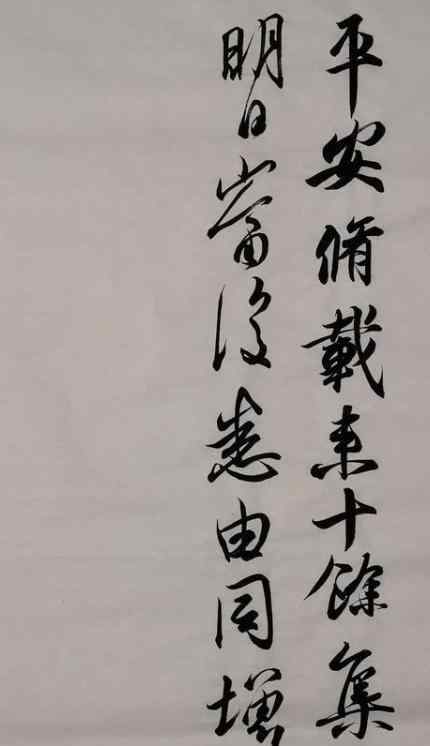 平安脩載来十餘集
明日當復悉由同增